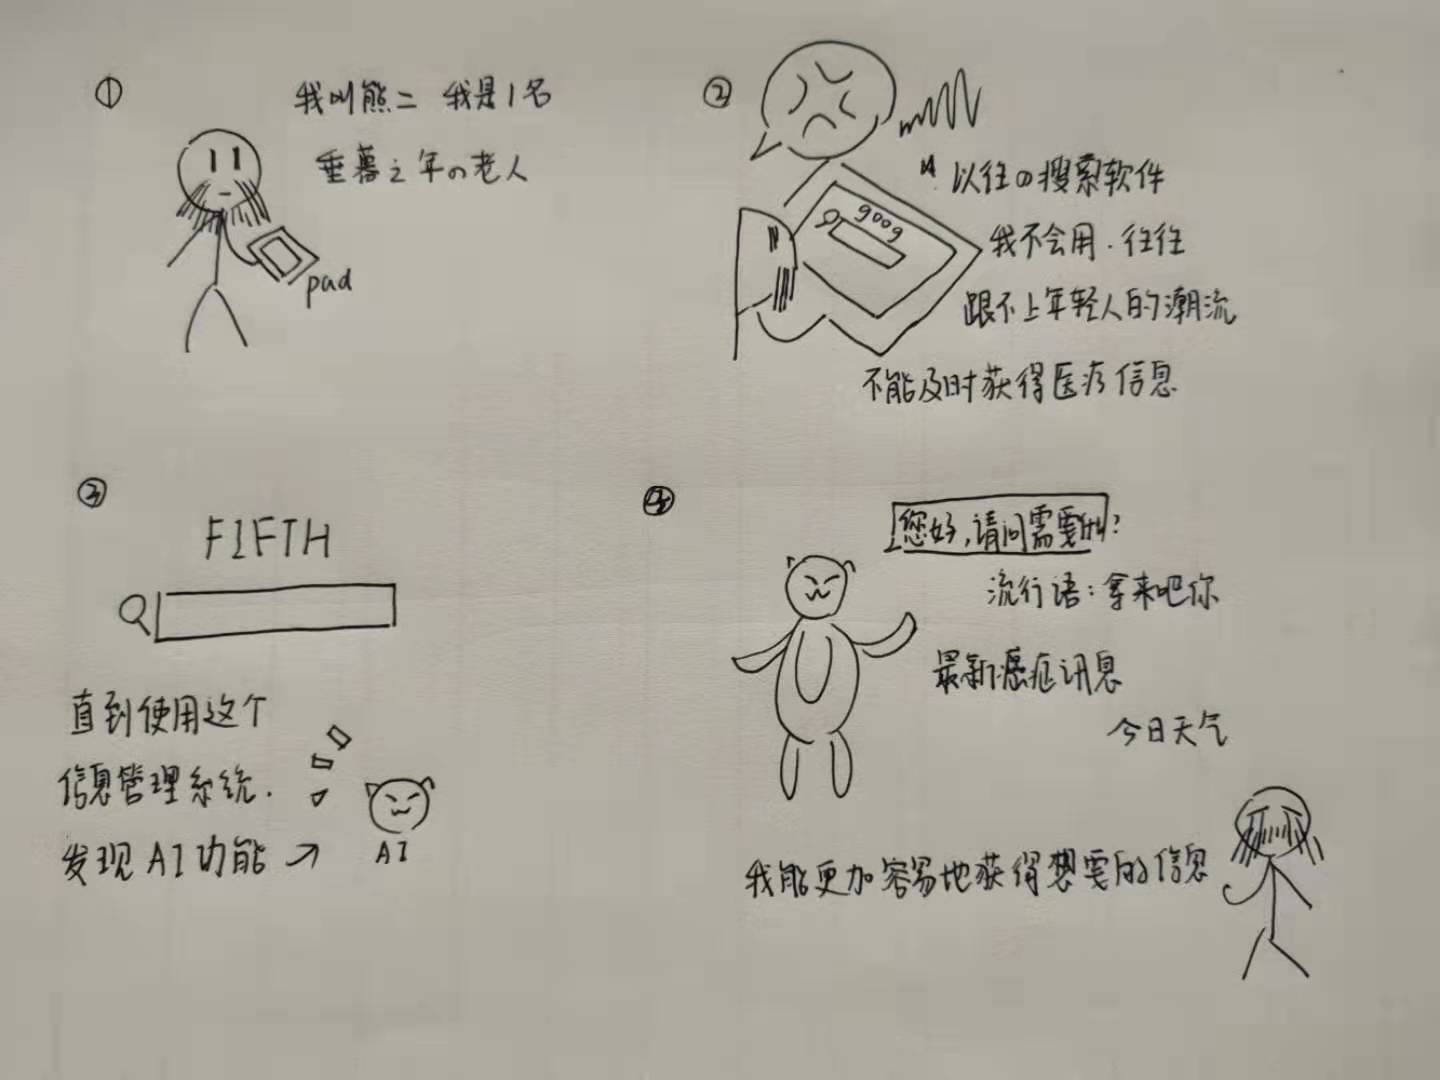 ①
我叫熊二 我是1名
垂暮之年の老人
pad
②
goog
以往の搜索软件
我不会用.往往
跟不上年轻人的潮流
不能及时获得医疗信息
③
FIFTH
直到使用这个
信息管理系统.
发现AI功能→
AI
④
您好,请问需要的?
流行语:拿来吧你
最新癌症讯息
今日天气
我能更加容易地获得想要的信息